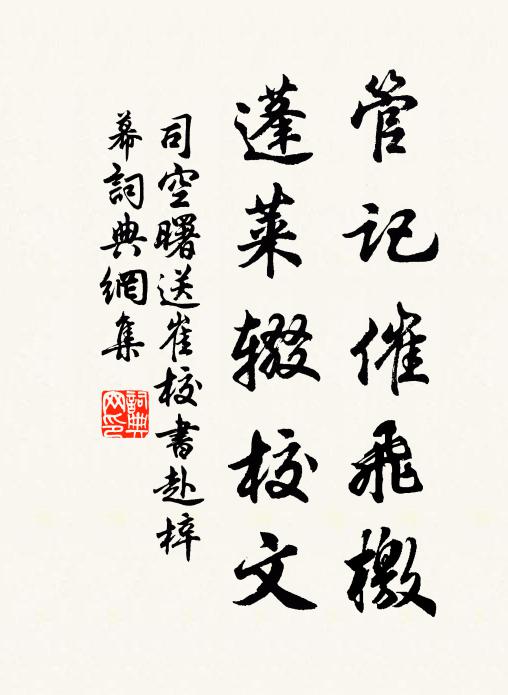 管记催飛檄
蓬莱辍校文
司空曙送崔校書赴梓
幕詞典網集
詞典网印